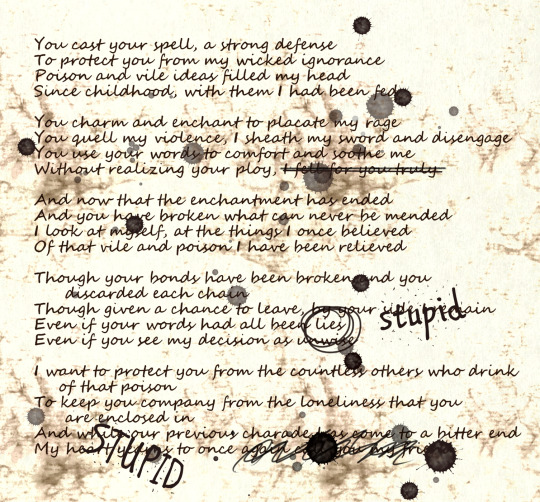 You cast your spell, a strong defense
To protect you from my wicked ignorance
Poison and vile ideas filled my head
Since childhood, with them I had been fed

You charm and enchant to placate my rage
You quell my violence, I sheath my sword and disengage
You use your words to comfort and soothe me
Without realizing your ploy, I fell for you truly

And now that the enchantment has ended
And you have broken what can never be mended
I look at myself, at the things I once believed
Of that vile and poison I have been relieved

Though your bonds have been broken and you
discarded each chain
Though given a chance to leave, by your side I remain
Even if your words had all been lies
Even if you see my decision as unwise
stupid

I want to protect you from the countless others who drink
of that poison
To keep you company from the loneliness that you
are enclosed in
And while our previous charade has come to a bitter end
My heart yearns to once again call you my friend
STUPID